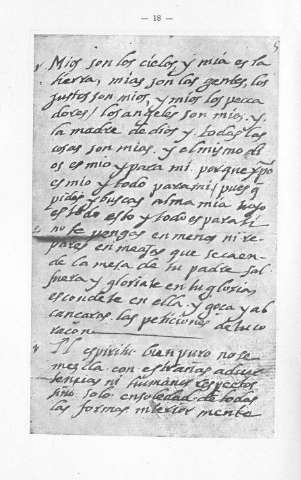 — 18 —
5
Mios son los cielos, y mia es la
tierra, mias son las gentes, los
Justos son mios, y mios los pecca
dores / los angeles son mios. y.
la madre de dios y todas las
cosas son mias. y el mismo di
os es mio y para mi. porque xp̃o
es mio y todo para mi / pues q̃
pides y buscas alma mia tuyo
es todo esto y todo es para ti
no te pongas en menos ni re
pares en meajas que se caen
de la mesa de tu padre sal
fuera y gloriate en tu gloria
escondete en ella. y goça y al
cançaras. las peticiones de tu co
raçon
El espiritu bien puro no se
mezcla con estrañas advir
tencias ni humanos respectos
sino solo en soledad de todas
las formas interior mente